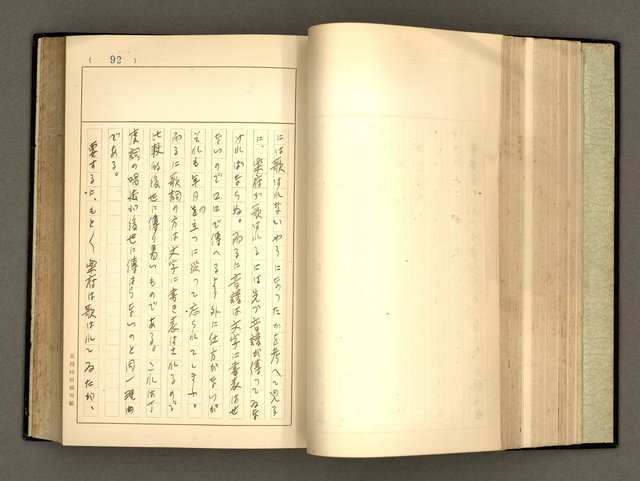 ( 92 )
には歌はれないやうになつたかを考へて見る
に、楽府が歌はれるとは先づ音譜が傳つてゐな
ければならぬ。而るに音譜は文字に書表はせ
ないので口口で傳へるより外に仕方がないが
それも年月の立つに從つて忘られてしまふ。
而るに歌詞の方は文字に書き表はされるので
比較的後世に傳り易いものである。これは丁
度詞の唱法が後世に傳はらないのと同一理由
である。
要するに、もとく楽府は歌はれてゐたが、
原稿用紙